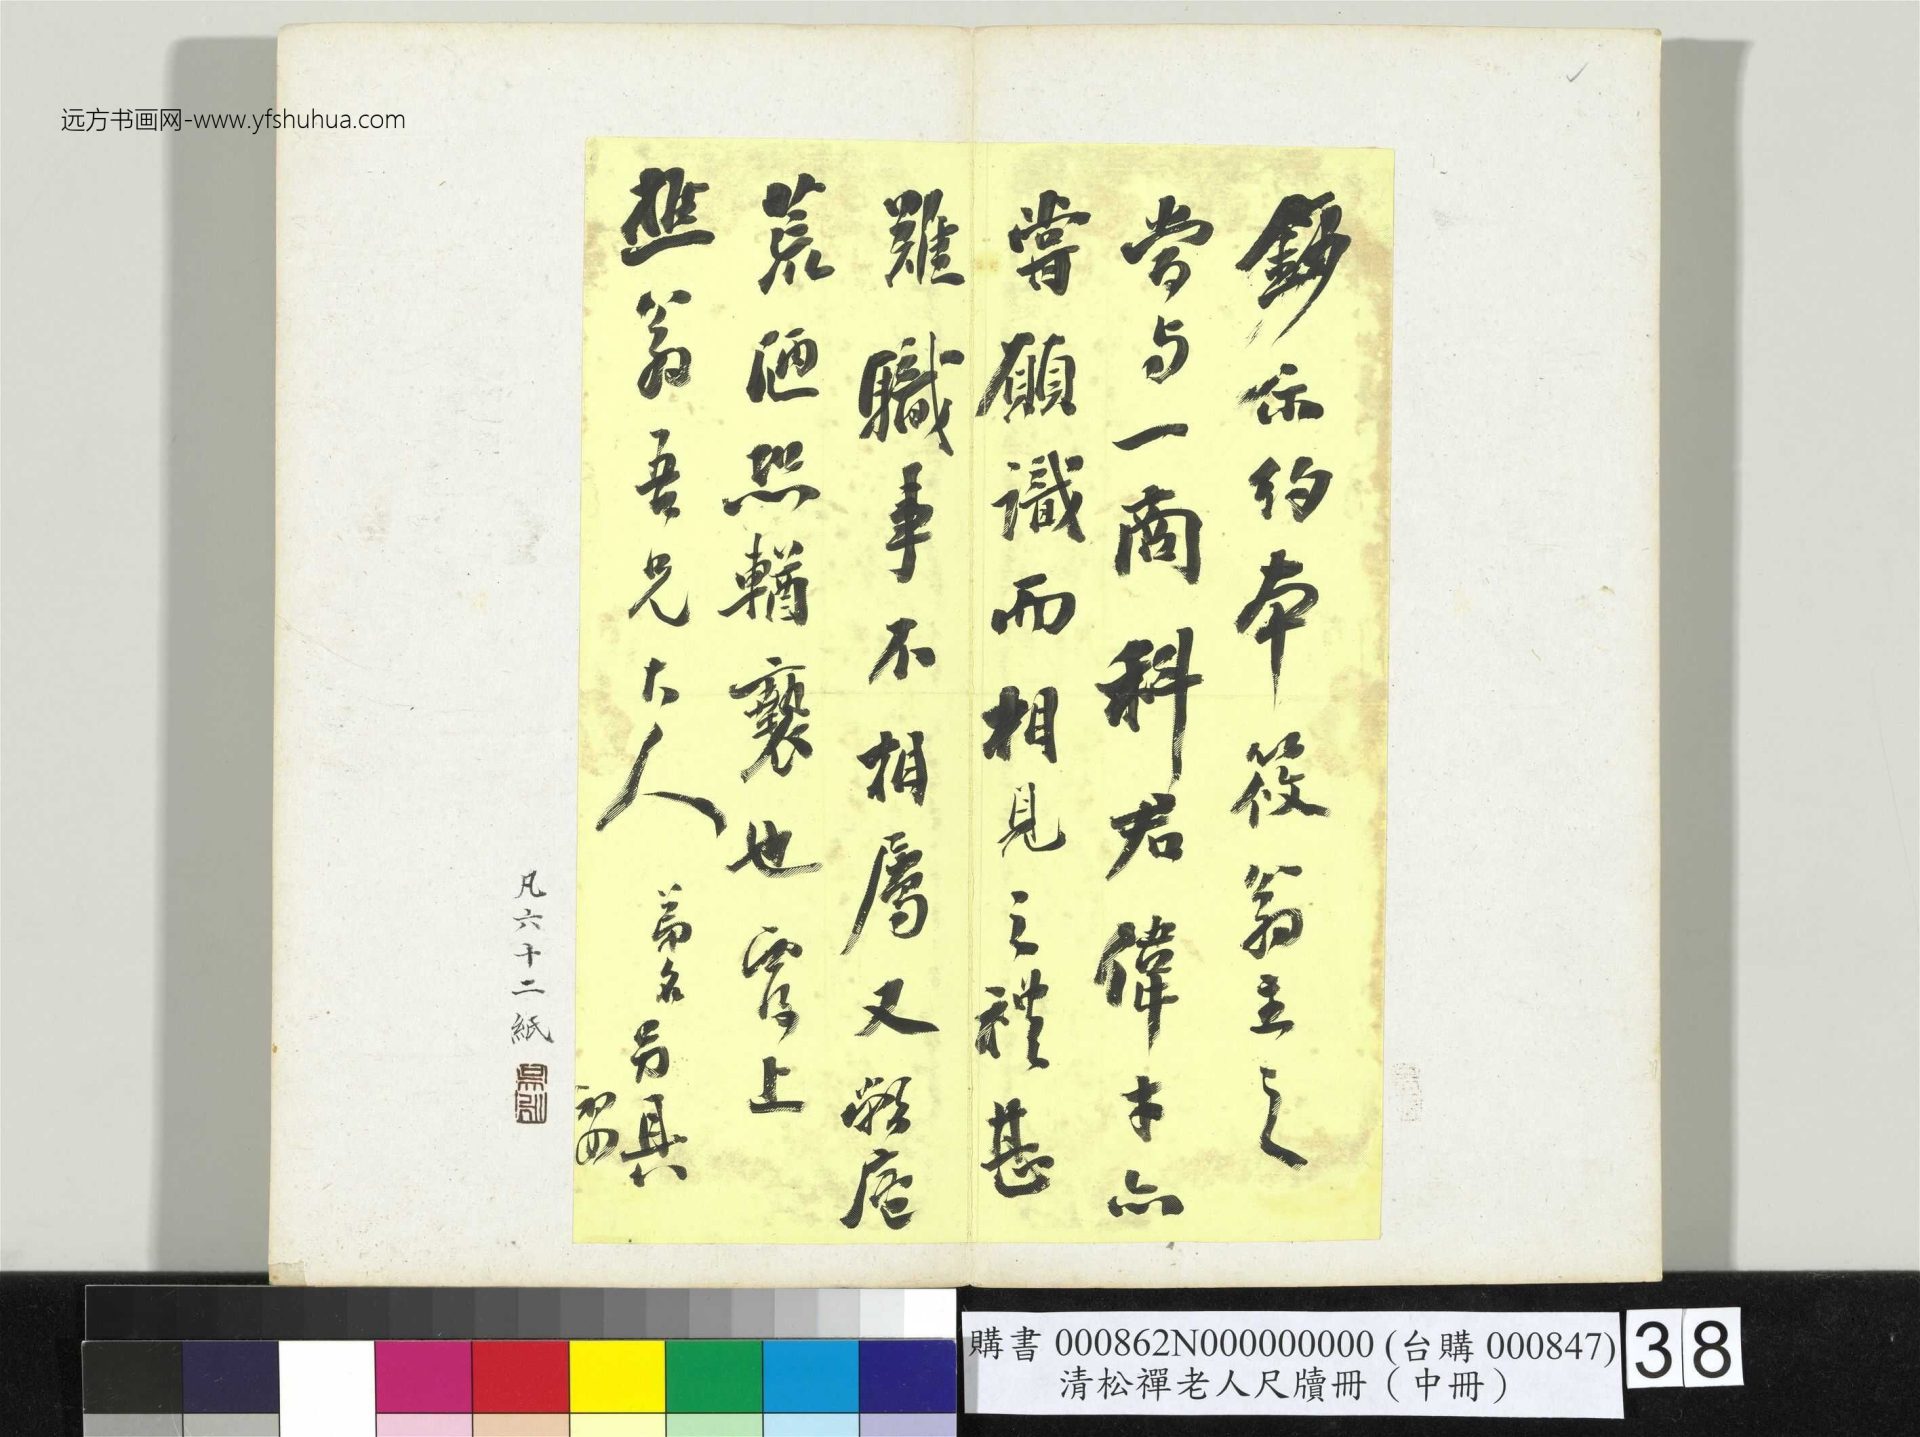 远方书画网-www.yfshuhua.com
鈔示約本筱翁主之
當与一商科君偉才亦
嘗願識而相見之禮甚
難職事不相屬又
荒陋恐輶褻也 上
樵翁吾兄大人 弟名另具
初四
凡六十二紙
購書 000862N000000000 (台購 000847)
清松禪老人尺牘冊（中冊）
38